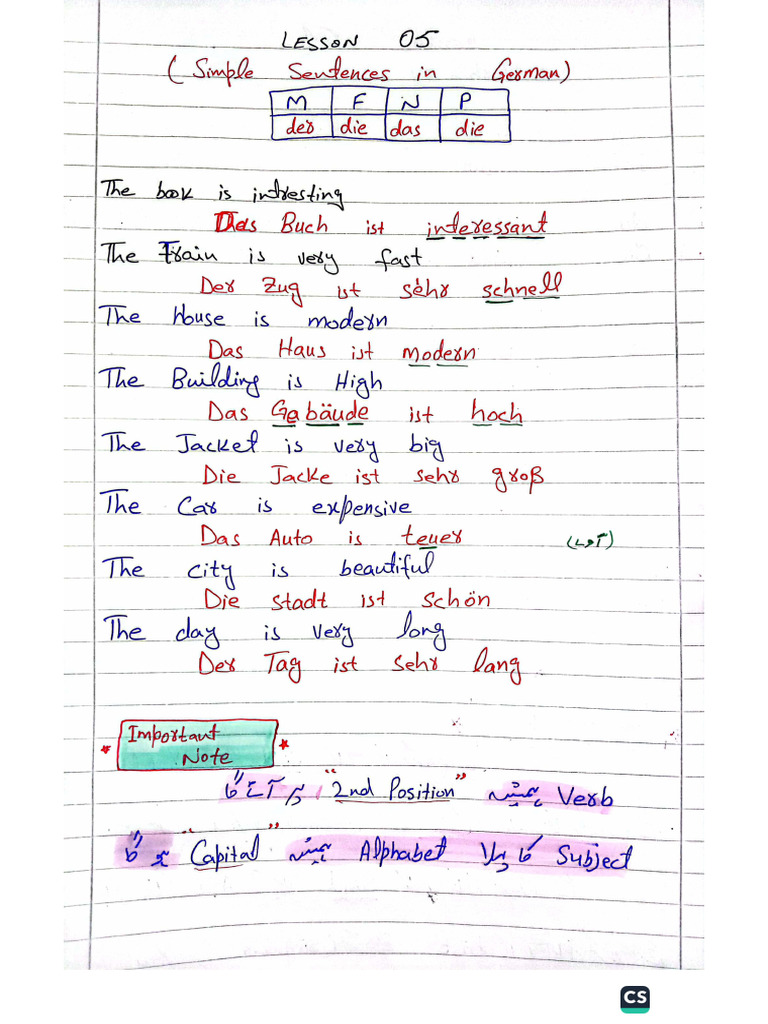 LESSON 05
(Simple Sentences in German)
M F N P
der die das die
The book is intresting
Das Buch ist interessant
The Train is very fast
Der Zug ist sehr schnell
The House is modern
Das Haus ist modern
The Building is High
Das Gebäude ist hoch
The Jacket is very big
Die Jacke ist sehr groß
The Car is expensive
Das Auto is teuer
The city is beautiful
Die Stadt ist schön
The day is very long
Der Tag ist sehr lang
* Important *
Note
Verb ہمیشہ "2nd Position" پر آئے گا
Subject کا پہلا Alphabet ہمیشہ "Capital" ہو گا
CS